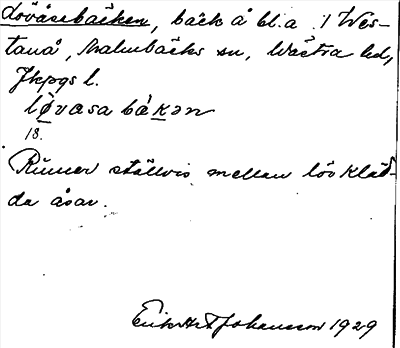 Lövåsebäcken, bäck å bl. a. i Wes-
tanå, Malmbäcks sn, Wästra hd,
Jkpgs l.
lø̀vasa bäkən
18.
Rinner ställvis mellan lövkläd-
da åsar.
Erik Johansson 1929